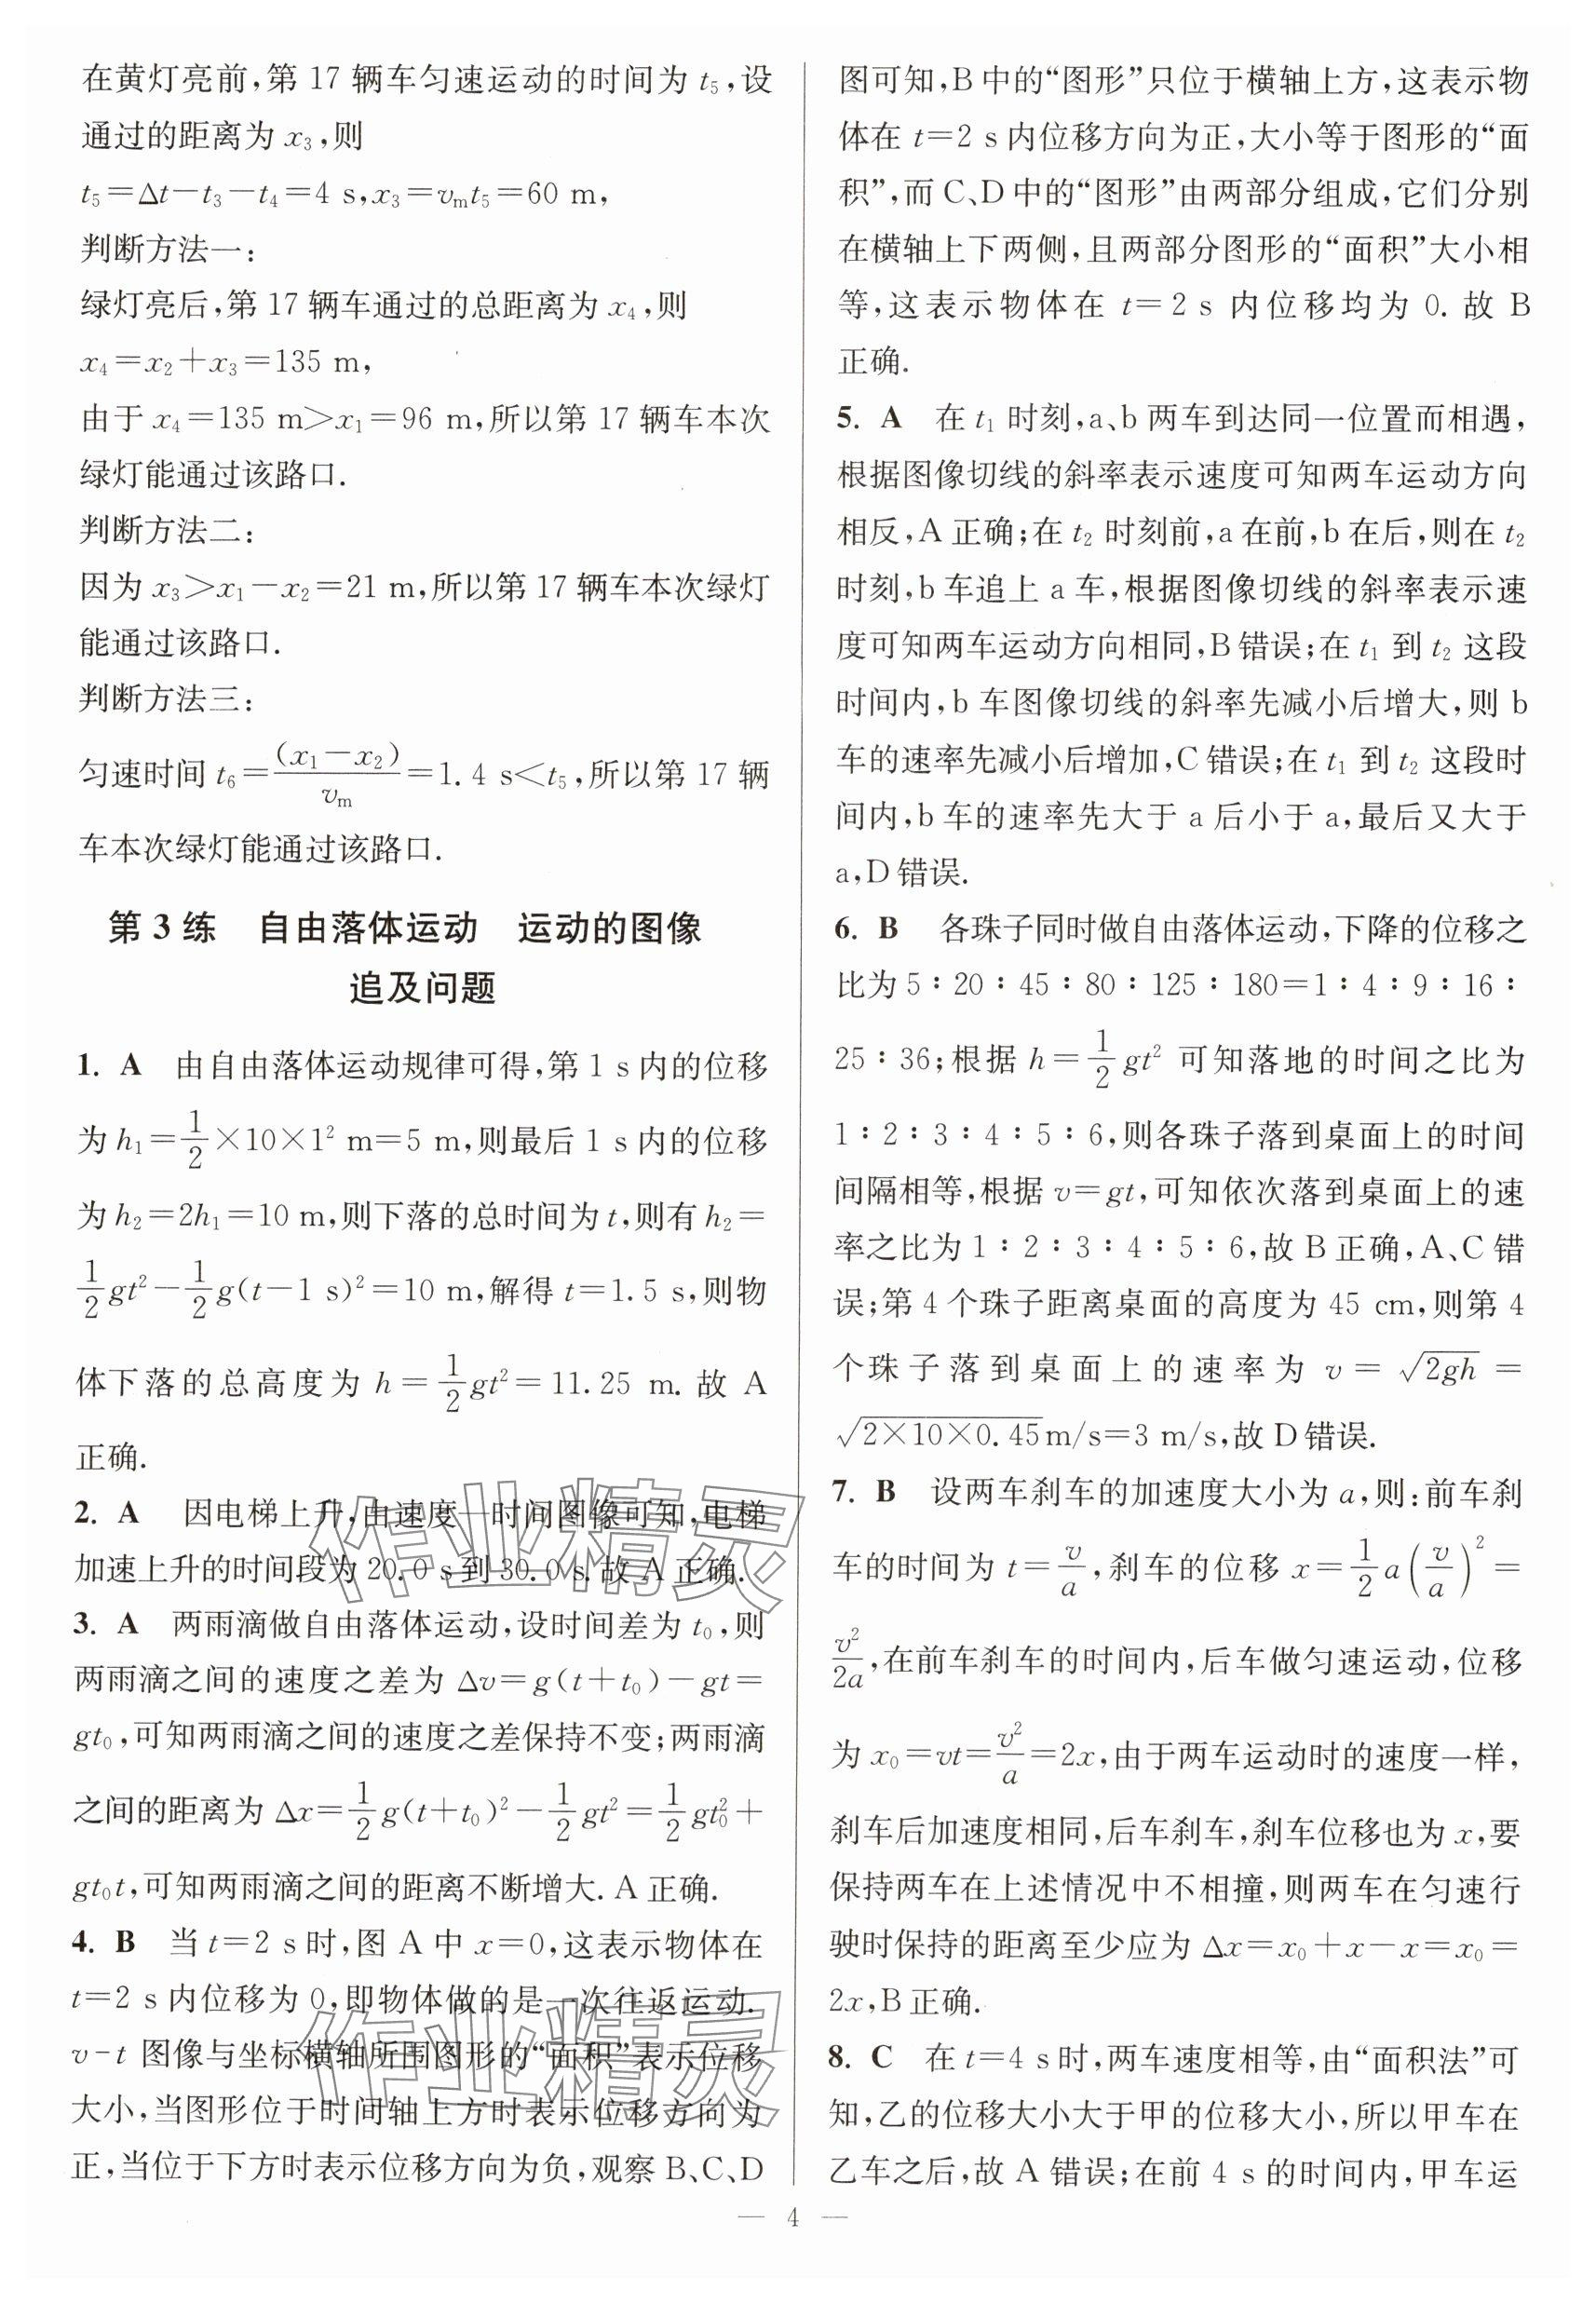 在黄灯亮前,第 17 辆车匀速运动的时间为 t₅,设
通过的距离为 x₃,则
t₅=Δt-t₃-t₄=4 s,x₃=vₘt₅=60 m,
判断方法一:
绿灯亮后,第 17 辆车通过的总距离为 x₄,则
x₄=x₂+x₃=135 m,
由于 x₄=135 m>x₁=96 m,所以第 17 辆车本次
绿灯能通过该路口.
判断方法二:
因为 x₃>x₁-x₂=21 m,所以第 17 辆车本次绿灯
能通过该路口.
判断方法三:
匀速时间 t₆=(x₁-x₂)/vₘ=1.4 s<t₅,所以第 17 辆
车本次绿灯能通过该路口.
第 3 练 自由落体运动 运动的图像
追及问题
1. A 由自由落体运动规律可得,第 1 s 内的位移
为 h₁=1/2×10×1² m=5 m,则最后 1 s 内的位移
为 h₂=2h₁=10 m,则下落的总时间为 t,则有 h₂=
1/2gt²-1/2g(t-1 s)²=10 m,解得 t=1.5 s,则物
体下落的总高度为 h=1/2gt²=11.25 m.故 A
正确.
2. A 因电梯上升,由速度—时间图像可知,电梯
加速上升的时间段为 20.0 s 到 30.0 s.故 A 正确.
3. A 两雨滴做自由落体运动,设时间差为 t₀,则
两雨滴之间的速度之差为 Δv=g(t+t₀)-gt=
gt₀,可知两雨滴之间的速度之差保持不变;两雨滴
之间的距离为 Δx=1/2g(t+t₀)²-1/2gt²=1/2gt₀²+
gt₀t,可知两雨滴之间的距离不断增大.A 正确.
4. B 当 t=2 s 时,图 A 中 x=0,这表示物体在
t=2 s 内位移为 0,即物体做的是一次往返运动.
v-t 图像与坐标横轴所围图形的“面积”表示位移
大小,当图形位于时间轴上方时表示位移方向为
正,当位于下方时表示位移方向为负,观察 B、C、D
图可知,B 中的“图形”只位于横轴上方,这表示物
体在 t=2 s 内位移方向为正,大小等于图形的“面
积”,而 C、D 中的“图形”由两部分组成,它们分别
在横轴上下两侧,且两部分图形的“面积”大小相
等,这表示物体在 t=2 s 内位移均为 0.故 B
正确.
5. A 在 t₁ 时刻,a、b 两车到达同一位置而相遇,
根据图像切线的斜率表示速度可知两车运动方向
相反,A 正确;在 t₂ 时刻前,a 在前,b 在后,则在 t₂
时刻,b 车追上 a 车,根据图像切线的斜率表示速
度可知两车运动方向相同,B 错误;在 t₁ 到 t₂ 这段
时间内,b 车图像切线的斜率先减小后增大,则 b
车的速率先减小后增加,C 错误;在 t₁ 到 t₂ 这段时
间内,b 车的速率先大于 a 后小于 a,最后又大于
a,D 错误.
6. B 各珠子同时做自由落体运动,下降的位移之
比为 5∶20∶45∶80∶125∶180=1∶4∶9∶16∶
25∶36;根据 h=1/2gt² 可知落地的时间之比为
1∶2∶3∶4∶5∶6,则各珠子落到桌面上的时间
间隔相等,根据 v=gt,可知依次落到桌面上的速
率之比为 1∶2∶3∶4∶5∶6,故 B 正确,A、C 错
误;第 4 个珠子距离桌面的高度为 45 cm,则第 4
个珠子落到桌面上的速率为 v=√(2gh)=
√(2×10×0.45)m/s=3 m/s,故 D 错误.
7. B 设两车刹车的加速度大小为 a,则:前车刹
车的时间为 t=v/a,刹车的位移 x=1/2a(v/a)²=
v²/2a,在前车刹车的时间内,后车做匀速运动,位移
为 x₀=vt=v²/a=2x,由于两车运动时的速度一样,
刹车后加速度相同,后车刹车,刹车位移也为 x,要
保持两车在上述情况中不相撞,则两车在匀速行
驶时保持的距离至少应为 Δx=x₀+x-x=x₀=
2x,B 正确.
8. C 在 t=4 s 时,两车速度相等,由“面积法”可
知,乙的位移大小大于甲的位移大小,所以甲车在
乙车之后,故 A 错误;在前 4 s 的时间内,甲车运
— 4 —
作业精灵
作业精灵